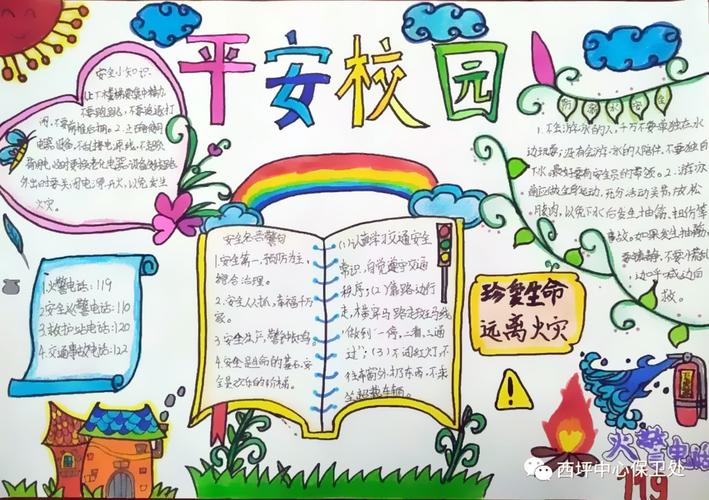 平安校园
安全小知识。
上下楼梯要集中精力,
不要跑跳,不要追逐打
闹,不要前推后拥。2.正确使用
电器设备,不乱接电源线,不超负
荷用电,及时更换老化电器设备和线路
外出时要关闭电源开关,以免发生
火灾。
1.火警电话:119
2.安全火警电话:110
3.救护站电话:120
4.交通事故电话:122
安全警句
1.安全第一,预防为主,
综合治理。
2.安全人人抓,幸福千万
家。
3.安全生产,警钟长鸣
4.安全是生命的基石,安
全是欢乐的阶梯。
(1)认真学习交通安全
常识,自觉遵守交通
秩序;(2)靠路边行
走,横穿马路走斑马线
做到“一停,二看,三通
过”;(3)不闯红灯,不
往车窗外扔东西,不乘
坐超载车辆。
防溺水安全
1.不会游泳的人,千万不要单独在水
边玩耍;没有会游泳的人陪伴,不要独自
下水,最好要有安全员的带领。2.游泳
前应做全身运动,充分活动关节,放松
肌肉,以免下水后发生抽筋、扭伤等
事故。如果发生抽筋,
要镇静,不要慌乱
边呼喊边向
珍爱生命
远离火灾
火警电话
119
西坪中心保卫处